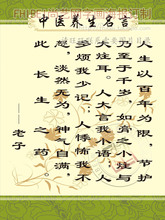 中医养生名言
人生以百年为限，节护
乃至千岁，如膏之小炷与
大炷耳。人大言我小语，人
多烦我少记；人悸怖我不
怒，淡然无为，神气自满，
此长生之药。
老子